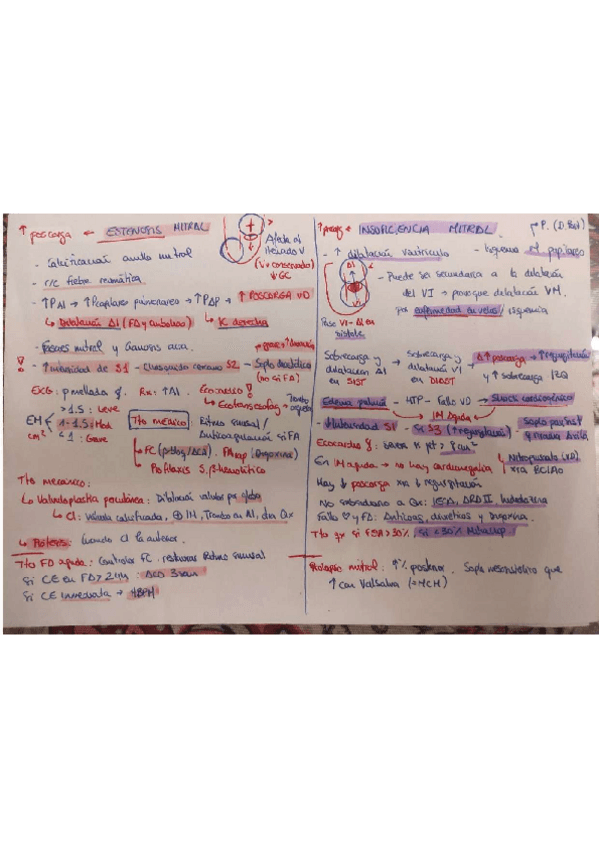 ↑ poscarga ← ESTENOSIS MITRAL
Afecta al
llenado V
(V conservado)
↓ GC
- Calcificación anillo mitral
- r/c fiebre reumática
- ↑ PAI → ↑ Pcapilares pulmonares → ↑ PAP → ↑ POSCARGA VD
↳ Dilatación AI (FA y embolias)
↳ IC derecha
- Facies mitral y cianosis
- ↑ intensidad de S1 - Chasquido cercano S2 - Soplo diastólico
(no si FA)
EKG: P mellada. Rx: ↑ AI. Ecocardio!
↳ Ecotransesofag → Trombo
EM
cm²
> 1.5: Leve
1-1.5: Mod
< 1: Grave
Tto médico
Ritmo sinusal /
Anticoagulación si FA
↳ FC (β-bloq/ACa). FA rap (Digoxina)
Profilaxis S. β-hemolítico
Tto mecánico:
↳ Valvuloplastia percutánea: Dilatación valvular por globo
↳ CI: Válvula calcificada, ⊕ IM, Trombo en AI, otra Qx
↳ Prótesis: Cuando CI la anterior.
Tto FA rápida: Controlar FC. restaurar Ritmo sinusal
Si CE en FA > 24h: ACO 3 sem
Si CE inmediata → HBPM
INSUFICIENCIA MITRAL
- ↑ dilatación ventrículo - Isquemia M. papilares
AI
VI
- Puede ser secundaria a la dilatación
del VI → provoque dilatación VM.
por enfermedad en velos / isquemia
Paso VI → AI en
sístole
Sobrecarga y
dilatación AI
en SIST
→ Sobrecarga y
dilatación VI
en DIAST
→ Si ↑ poscarga → ↑ regurgitación
y ↑ sobrecarga IZQ
Edema pulmón - HTP - Fallo VD → Shock cardiogénico
IM Aguda
- ↓ Intensidad S1 - Si S3 (↑ regurgitación)
Ecocardio
En IM aguda → no hay cardiomegalia
Nitroprusiato (VD)
Hay ↓ poscarga xa ↓ regurgitación
No subsidiario a Qx: IECA, ARA II,
Fallo ♡ y FA: Anticoag, diuréticos y Digoxina.
Tto qx si FEVI > 30% Si < 30% Mitraclip
Prolapso mitral: ↑ % posterior. Soplo mesosistólico que
↑ con Valsalva (= MCH)